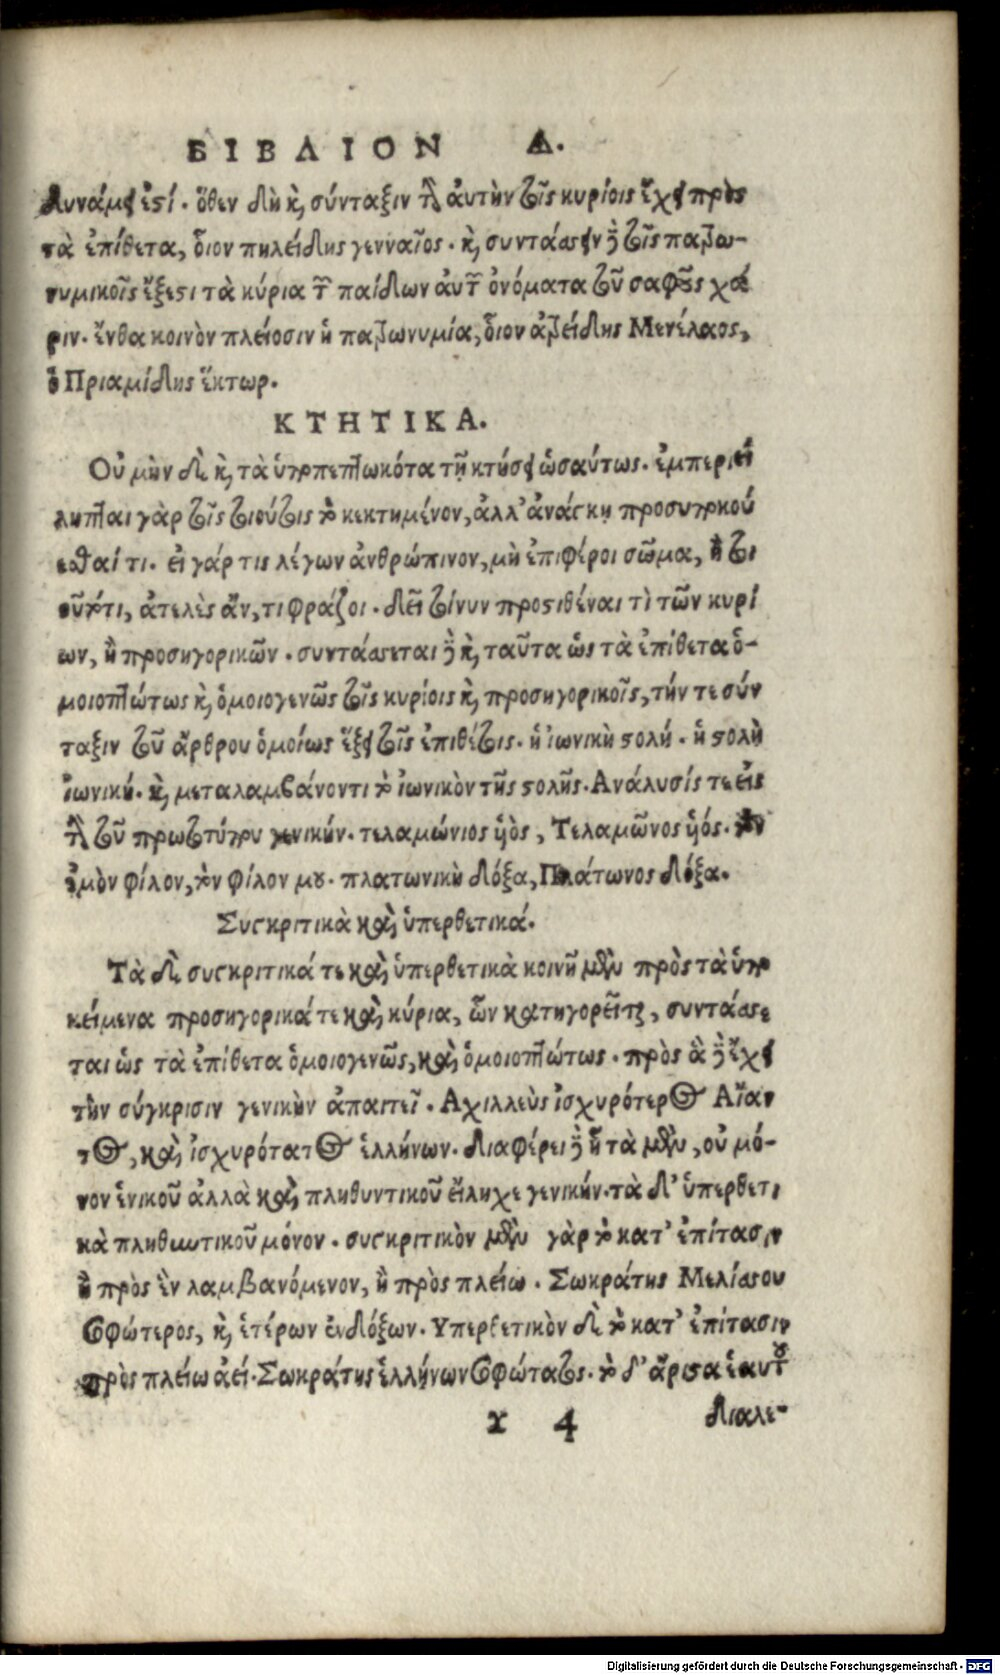 ΒΙΒΛΙΟΝ Δ.
δυνάμει ἐστί. ὅθεν δὴ κὶ, σύνταξιν τὴν ἀυτὴν τοῖς κυρίοις ἔχει πρὸς
τὰ ἐπίθετα, ὅιον πηλείδης γενναῖος. κὶ, συντάσσειν δὲ τοῖς πατρω-
νυμικοῖς ἔξεστι τὰ κύρια τῶν παίδων ἀυτῶν ὀνόματα τοῦ σαφοῦς χά
ριν. ἔνθα κοινὸν πλείοσιν ἡ πατρωνυμία, ὅιον ἀτρείδης Μενέλαος,
ὁ Πριαμίδης ἕκτωρ.
ΚΤΗΤΙΚΑ.
Οὐ μὴν δὲ κὶ, τὰ ὑποπεπτωκότα τῇ κτήσει ὡσαύτως. ἐμπεριεί
ληπται γὰρ τοῖς τοιούτοις τὸ κεκτημένον, ἀλλ' ἀνάγκη προσυπακού
εσθαί τι. εἰ γάρ τις λέγων ἀνθρώπινον, μὴ ἐπιφέροι σῶμα, ἢ τοι
οῦτό τι, ἀτελὲς ἄν, τι φράζοι. δεῖ τοίνυν προστιθέναι τὶ τῶν κυρί
ων, ἢ προσηγορικῶν. συντάσσεται δὲ κὶ, ταῦτα ὡς τὰ ἐπίθετα ὁ-
μοιοπτώτως κὶ, ὁμοιογενῶς τοῖς κυρίοις κὶ, προσηγορικοῖς, τήν τε σύν
ταξιν τοῦ ἄρθρου ὁμοίως ἕξει τοῖς ἐπιθέτοις. ἡ ἰωνικὴ στολή. ἡ στολὴ
ἰωνική. κὶ, μεταλαμβάνοντι τὸ ἰωνικὸν τῆς στολῆς. Ανάλυσίς τε εἰς
τὴν τοῦ πρωτοτύπου γενικήν. τελαμώνιος ὑὸς, Τελαμῶνος ὑός. τὸν
ἐμὸν φίλον, τὸν φίλον μου. πλατωνικὴ δόξα, Πλάτωνος δόξα.
Συγκριτικὰ καὶ, ὑπερθετικά.
Τὰ δὲ συγκριτικά τε καὶ, ὑπερθετικὰ κοινῇ μὲν πρὸς τὰ ὑπο
κείμενα προσηγορικά τε καὶ, κύρια, ὧν κατηγορεῖται, συντάσσε
ται ὡς τὰ ἐπίθετα ὁμοιογενῶς, καὶ, ὁμοιοπτώτως. πρὸς ἃ δὲ ἔχει
τὴν σύγκρισιν γενικὴν ἀπαιτεῖ. Αχιλλεὺς ἰσχυρότερος Αἴαν
τος, καὶ, ἰσχυρότατος ἑλλήνων. διαφέρει δὲ ᾗ τὰ μὲν, οὐ μό-
νον ἑνικοῦ ἀλλὰ καὶ, πληθυντικοῦ εἴληχε γενικήν. τὰ δ' ὑπερθετι
κὰ πληθυντικοῦ μόνον. συγκριτικὸν μὲν γὰρ τὸ κατ' ἐπίτασιν
ἢ πρὸς ἓν λαμβανόμενον, ἢ πρὸς πλείω. Σωκράτης Μελίσσου
σοφώτερος, κὶ, ἑτέρων ἐνδόξων. Υπερθετικὸν δὲ τὸ κατ' ἐπίτασιν
πρὸς πλείω ἀεί. Σωκράτης ἑλλήνων σοφώτατος. τὸ δ' ἄριστα ἑαυτοῦ
r 4 διαλε-
Digitalisierung gefördert durch die Deutsche Forschungsgemeinschaft - DFG